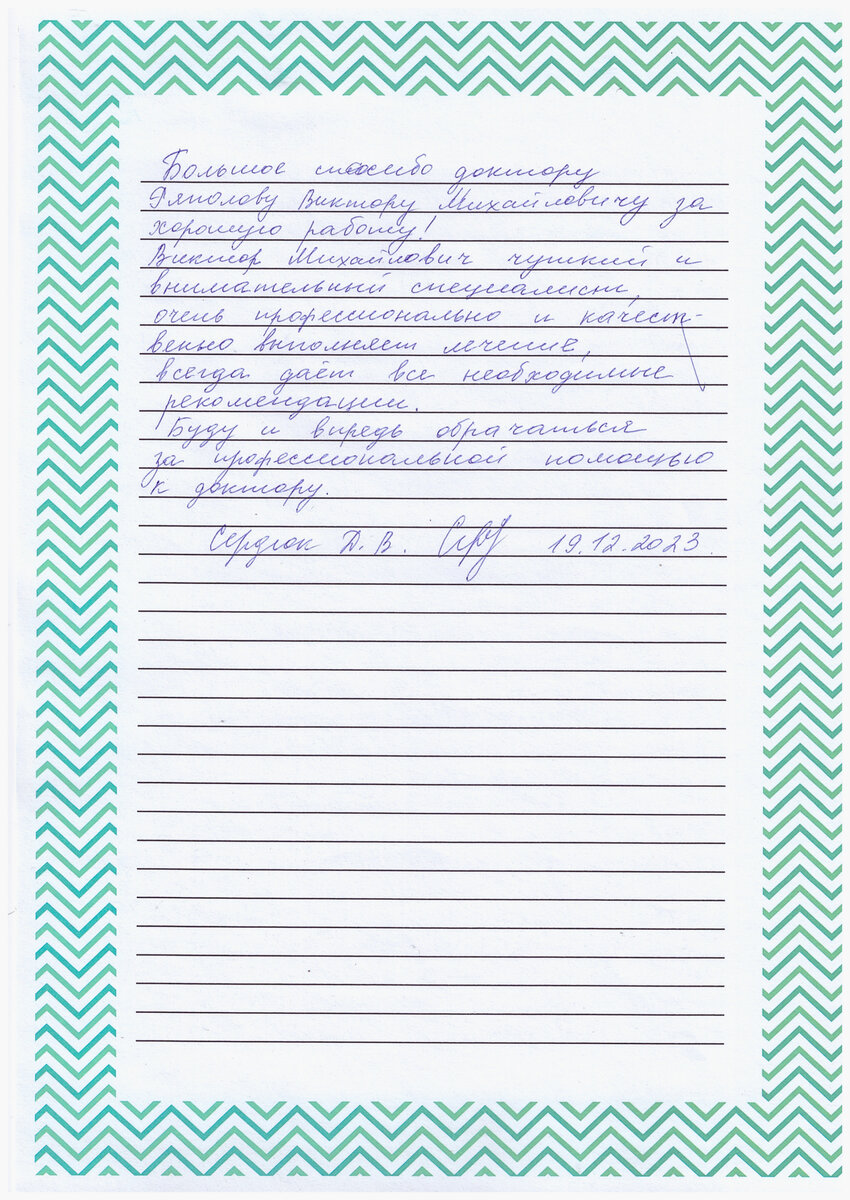 Большое спасибо доктору
Ряполову Виктору Михайловичу за
хорошую работу!
Виктор Михайлович чуткий и
внимательный специалист,
очень профессионально и качест-
венно выполняет лечение,
всегда даёт все необходимые
рекомендации.
Буду и впредь обрачаться
за профессиональной помощью
к доктору.
Сердюк Д. В. 19.12.2023.